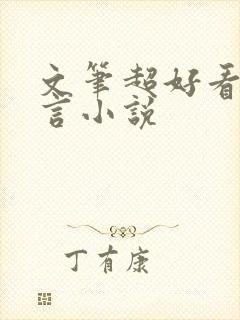 文笔超好看
言小说
丁有康